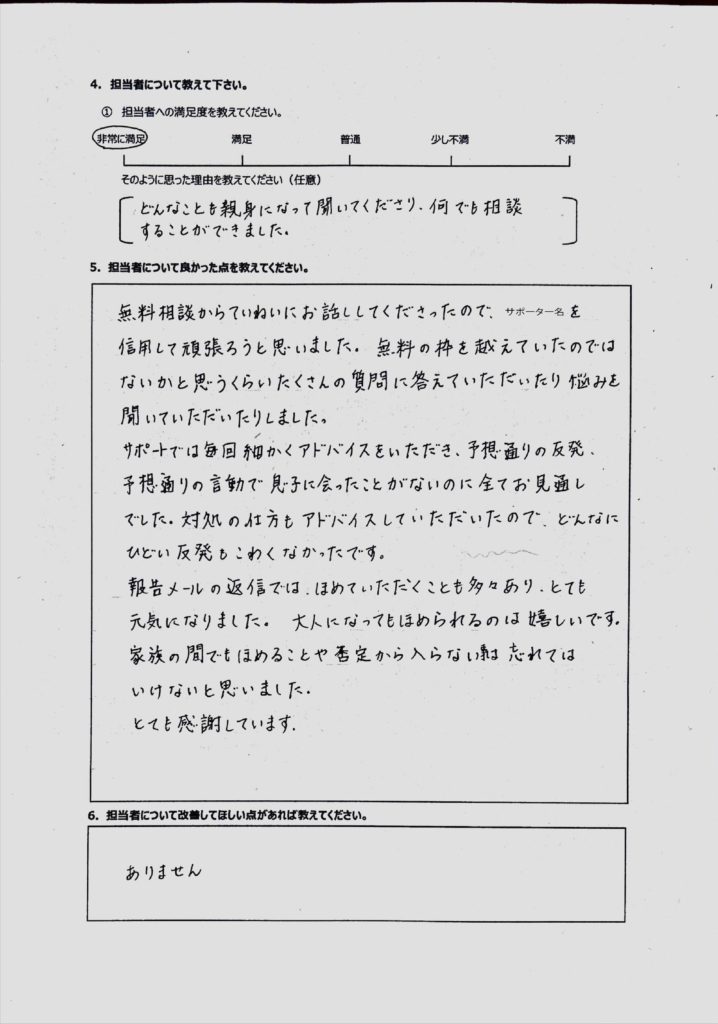 4．担当者について教えて下さい。
① 担当者への満足度を教えてください。
非常に満足 満足 普通 少し不満 不満
そのように思った理由を教えてください（任意）
どんなことも親身になって聞いてくださり、何でも相談
することができました。
5．担当者について良かった点を教えてください。
無料相談からていねいにお話ししてくださったので、サポーター名を
信用して頑張ろうと思いました。無料の枠を越えていたのでは
ないかと思うくらいたくさんの質問に答えていただいたり悩みを
聞いていただいたりしました。
サポートでは毎回細かくアドバイスをいただき、予想通りの反発、
予想通りの言動で息子に会ったことがないのに全てお見通し
でした。対処の仕方もアドバイスしていただいたので、どんなに
ひどい反発もこわくなかったです。
報告メールの返信では、ほめていただくことも多々あり、とても
元気になりました。大人になってもほめられるのは嬉しいです。
家族の間でもほめることや否定から入らない事は忘れては
いけないと思いました。
とても感謝しています。
6．担当者について改善してほしい点があれば教えてください。
ありません